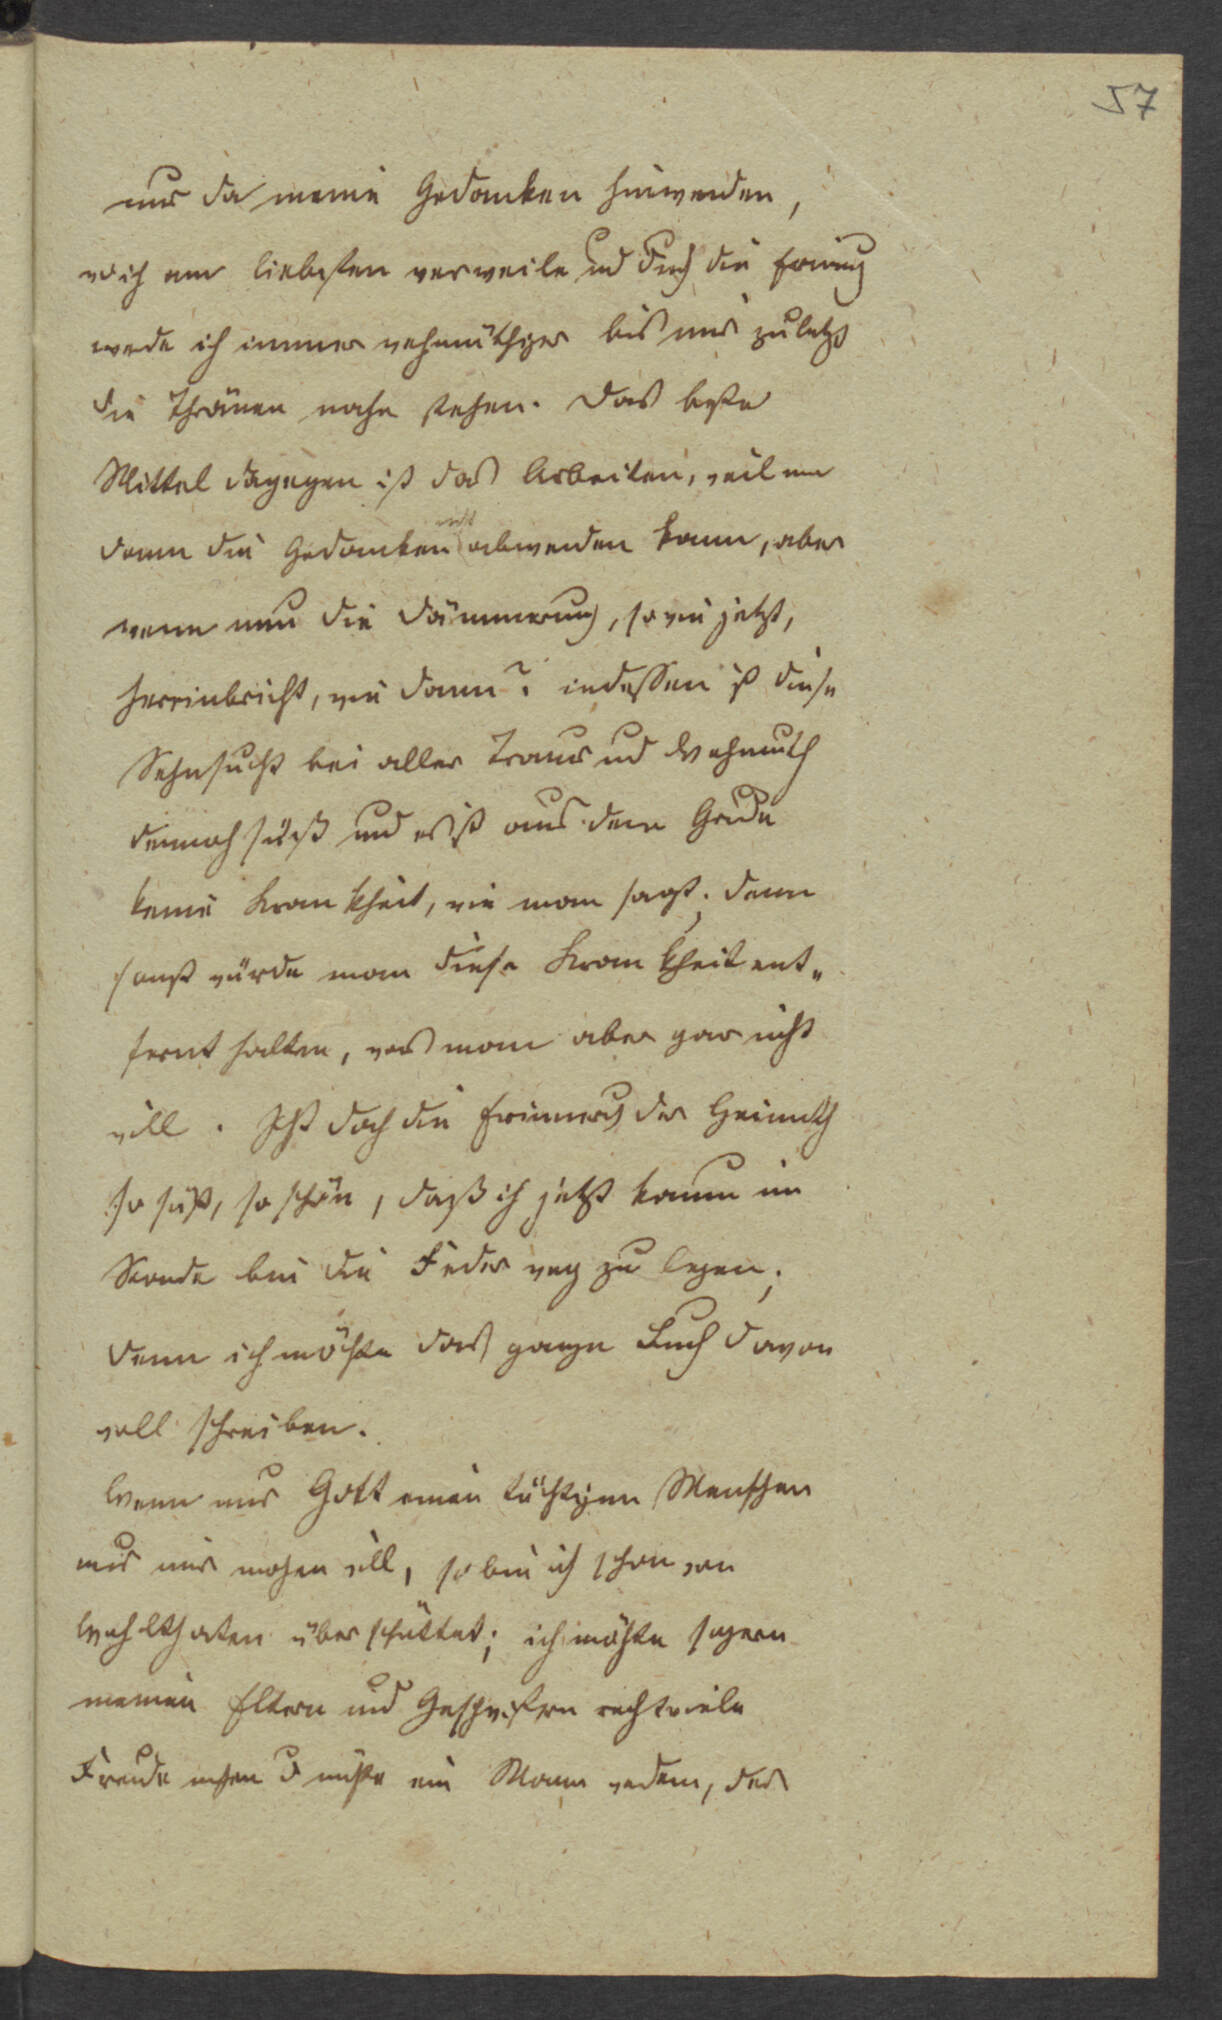 57
nur da meine Gedanken hinwenden,
wo ich am liebsten verweile und durch die Erinng
werde ich immer wehmüthiger bis mir zuletzt
die Thränen nahe stehen. Das beste
Mittel dagegen ist das Arbeiten, weil man
dann die Gedanken nicht abwenden kann, aber
wenn nun die Dämmerung, so wie jetzt,
hereinbricht, wie dann? indessen ist diese
Sehnsucht bei aller Trauer und Wehmuth
dennoch süß und es ist aus dem Grunde
keine Krankheit, wie man sagt; denn
sonst würde man diese Krankheit ent„
fernt halten, was man aber gar nicht
will. Ist doch die Erinnerung der Heimath
so süß, so schön, daß ich jetzt kaum im
Stande bin die Feder weg zu legen;
denn ich möchte das ganze Buch davon
voll schreiben.
Wenn nur Gott einen tüchtigen Menschen
aus mir machen will, so bin ich schon von
Wohlthaten überschüttet; ich möchte so gern
meinen Eltern und Geschwistern recht viele
Freude machen u müßte ein Mann werden, der